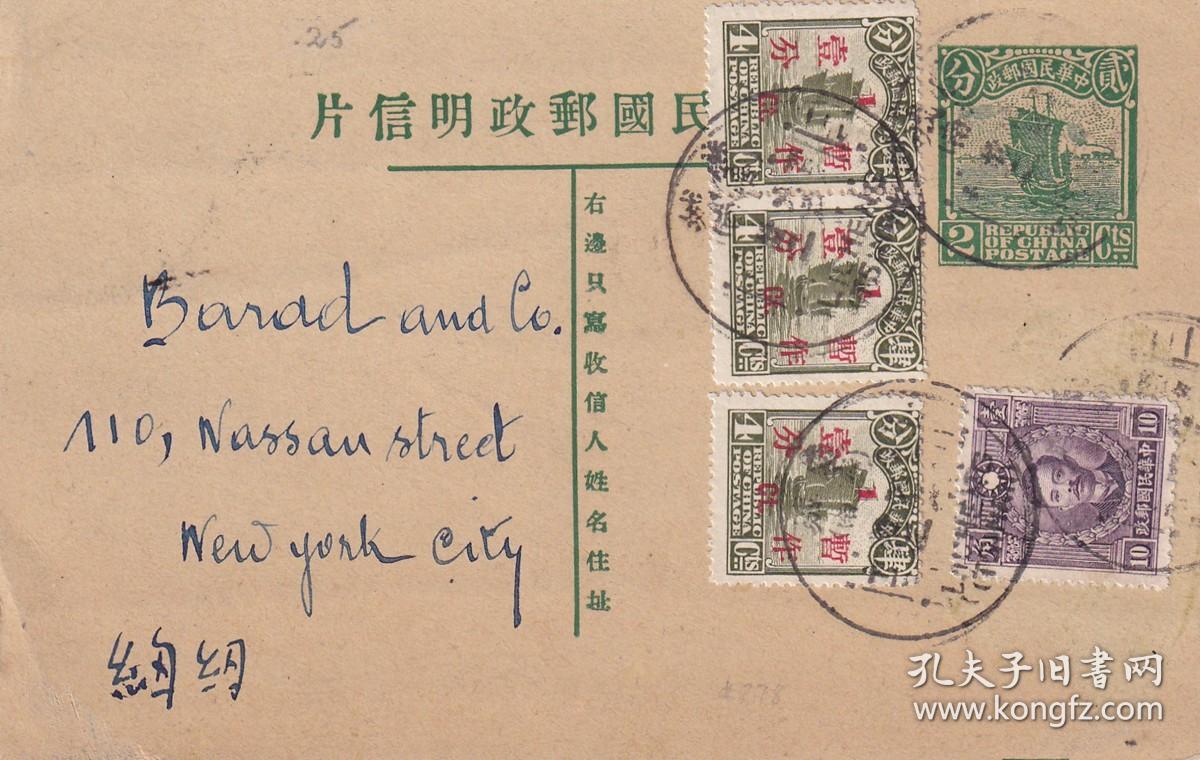 .25
片信明政郵國民
分 中華民國郵政 貳
2 REPUBLIC OF CHINA POSTAGE Cts
右邊只寫收信人姓名住址
Barad and Co.
110, Nassau street
New york City
4 REPUBLIC OF CHINA POSTAGE Cts
分 中華民國郵政 肆
暫作壹分 1
4 REPUBLIC OF CHINA POSTAGE Cts
分 中華民國郵政 肆
暫作壹分 1
4 REPUBLIC OF CHINA POSTAGE Cts
分 中華民國郵政 肆
暫作壹分 1
10 中華民國郵政 10
壹 角
孔夫子旧书网
www.kongfz.com